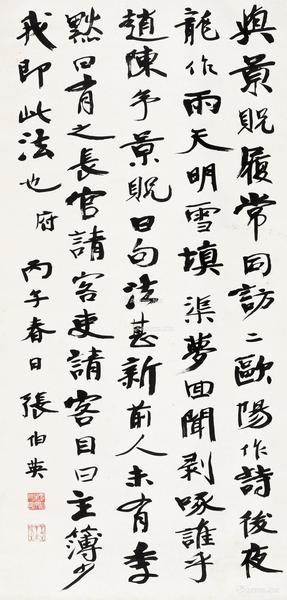 與景貺履常同訪二歐陽作詩後夜
龍作雨天明雪填渠夢回聞剥啄誰乎
趙陳予景貺曰句法甚新前人未有季
默曰有之長官請客吏請客目曰主簿少
我即此法也 府 丙午春日 張伯英